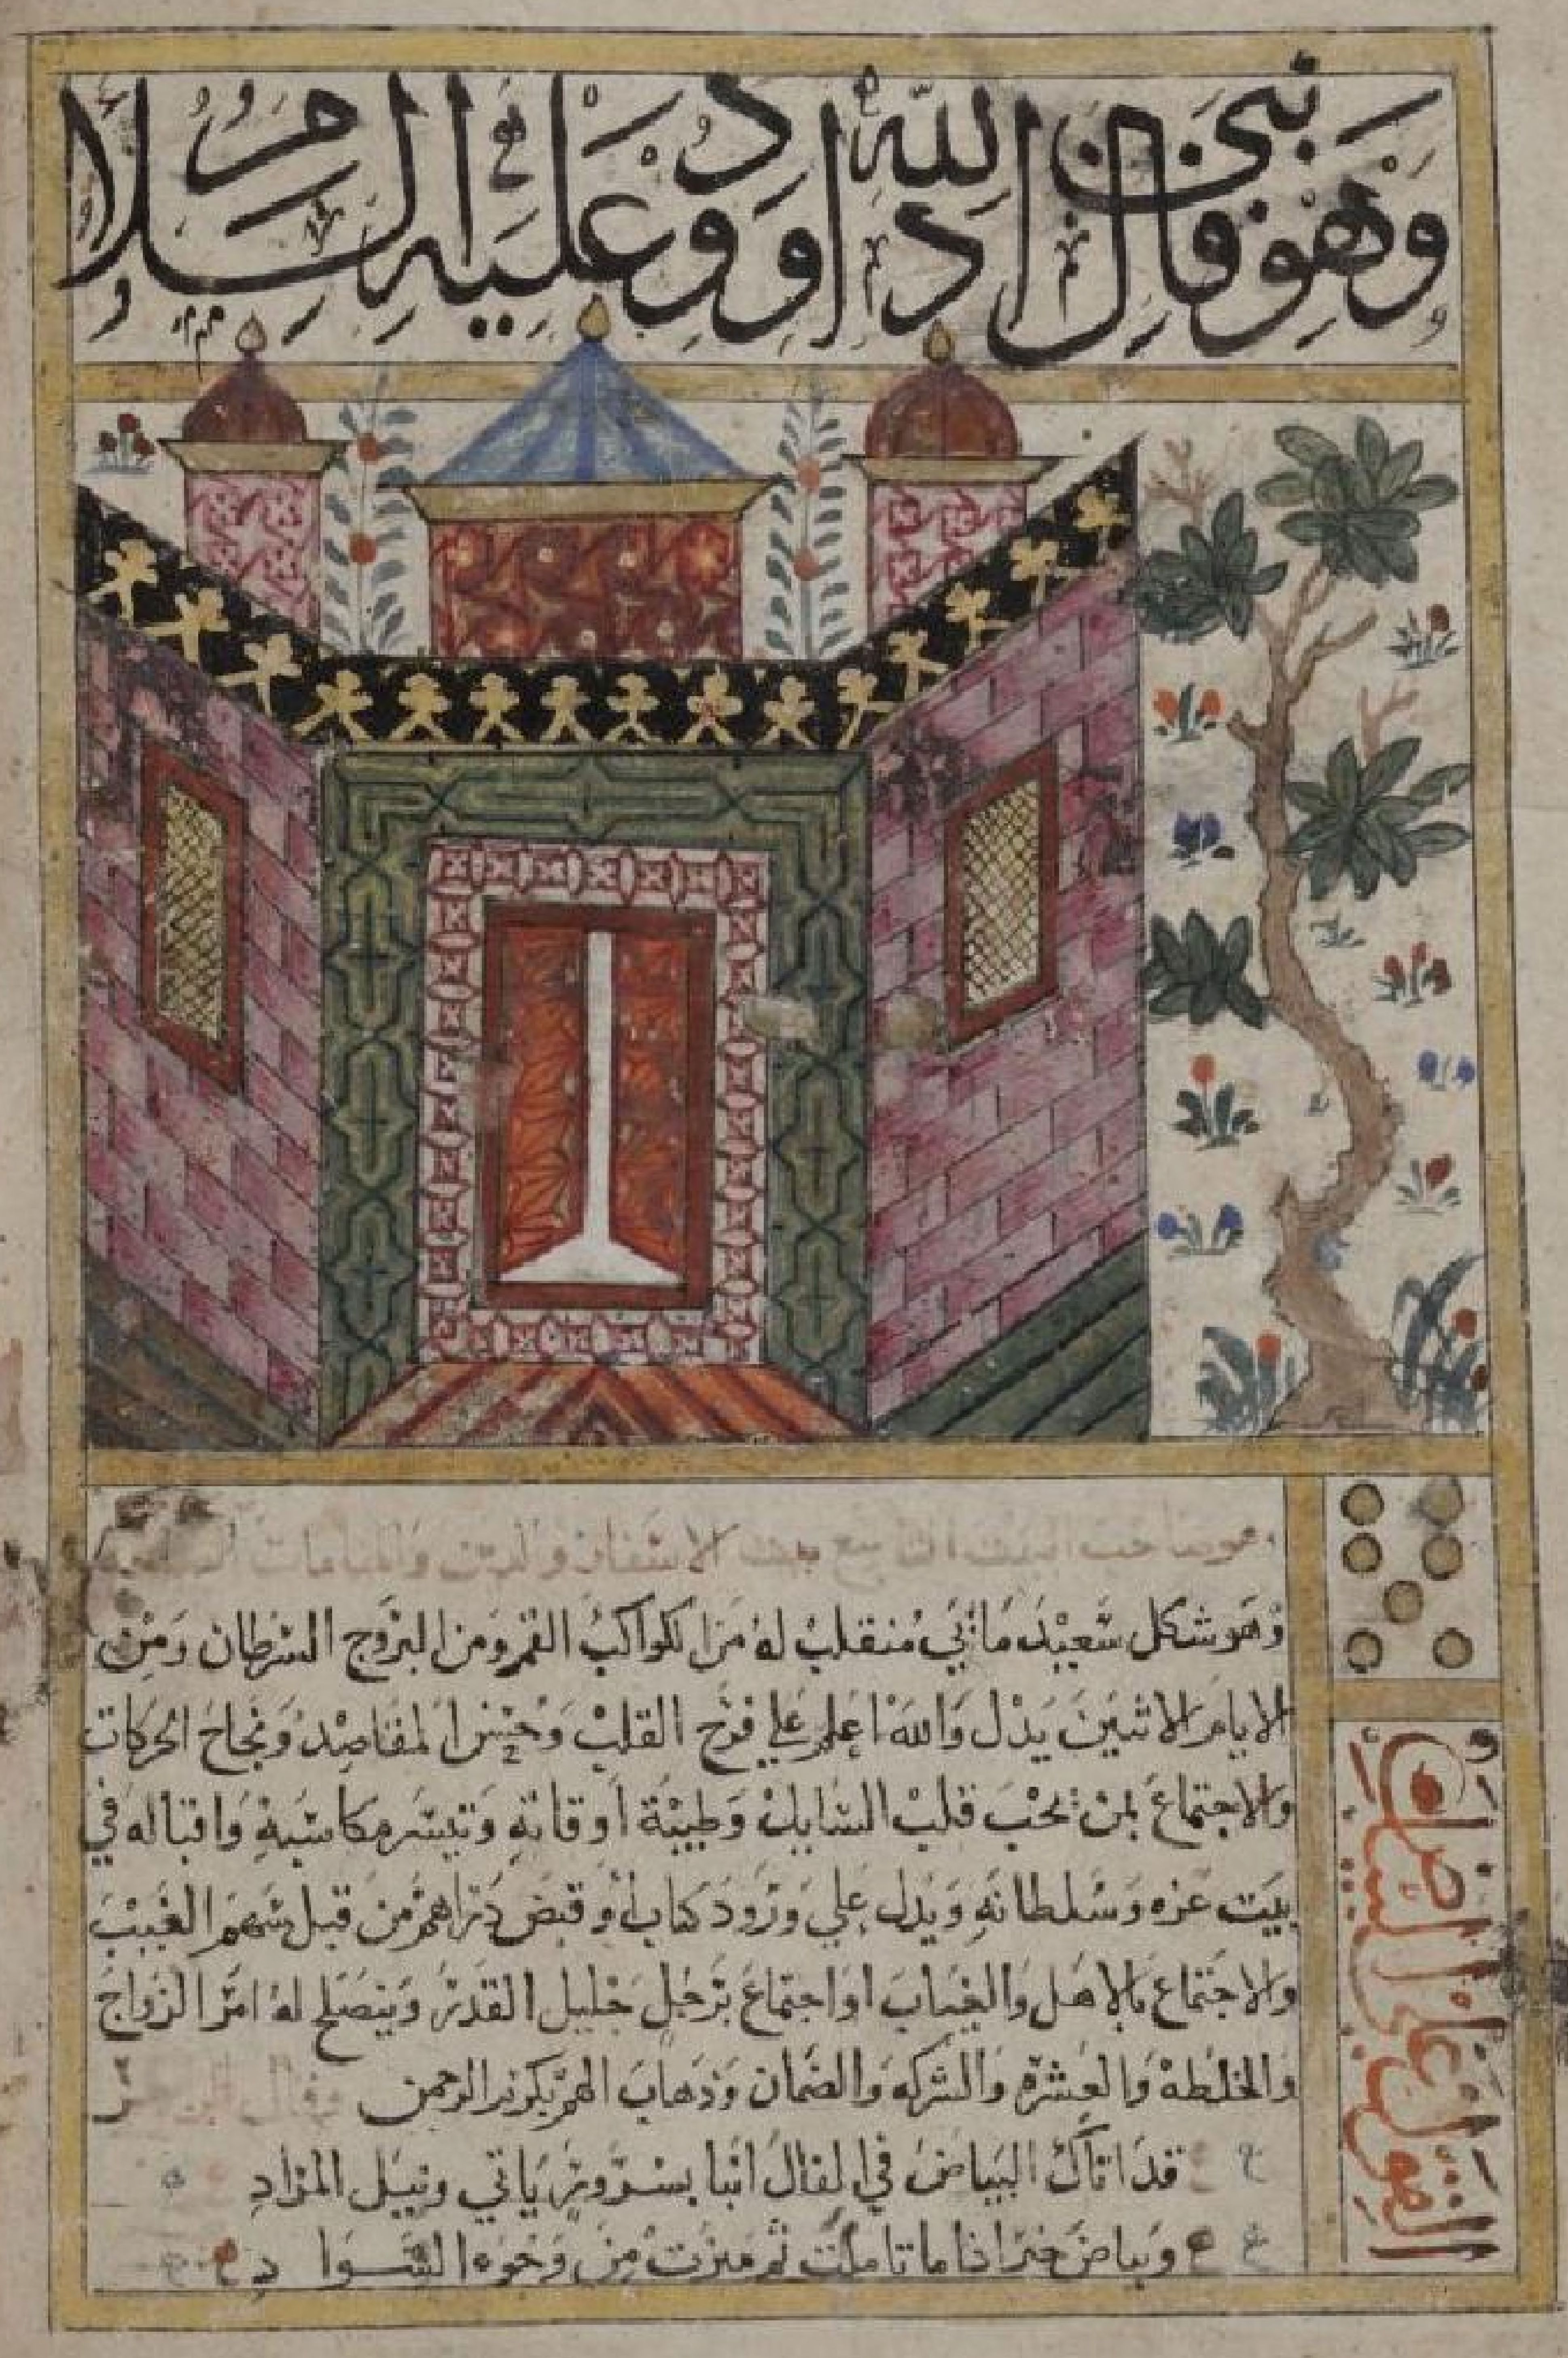 وَهُوَ فَال نبي الله اداوود عليه السلام
صاحب البيت التاسع بيت الاسفار والدين والمنامات
وهو شكل سعيد مائي منقلب له من الكواكب القمر ومن البروج السرطان ومن
الايام الاثنين يدل والله اعلم علي فرح القلب وحسن المقاصد ونجاح الحركات
والاجتماع بمن يحب قلب السايل وطيبة اوقاته وتيسر مكاسبه واقباله في
بيت عزه وسلطانه ويدل علي ورود كتاب او قبض دراهم من قبل سهم الغيب
والاجتماع بالاهل والغياب او اجتماع برجل جليل القدر وينصلح له امر الزواج
والخلطة والعشره والشركه والضمان وذهاب الهم بكرم الرحمن
قد اتاك البياض في الفال انبا بسرور ياتي ونيل المراد
وبياض خير اذا ما تاملت ثم ميزت من وجوه السواد
القول على البياض